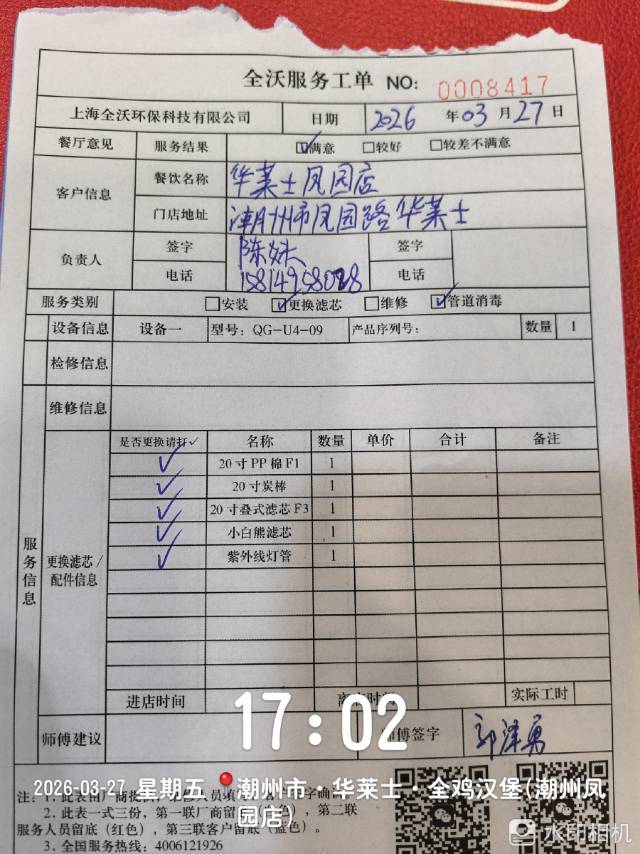 全沃服务工单 NO: 0008417
上海全沃环保科技有限公司 日期 2026 年 03 月 27 日
餐厅意见 服务结果 ☑满意 □较好 □较差不满意
客户信息 餐饮名称 华莱士凤园店
门店地址 潮州市凤园路华莱士
负责人 签字 签字
电话 电话
服务类别 □安装 ☑更换滤芯 □维修 ☑管道消毒
设备信息 设备一 型号: QG-U4-09 产品序列号: 数量 1
检修信息
维修信息
服务信息
更换滤芯/配件信息
是否更换请打✓ 名称 数量 单价 合计 备注
✓ 20寸PP棉F1 1
✓ 20寸炭棒 1
✓ 20寸叠式滤芯F3 1
✓ 小白熊滤芯 1
✓ 紫外线灯管 1
进店时间 实际工时
17:02
师傅建议 师傅签字
2026-03-27 星期五 潮州市·华莱士·全鸡汉堡(潮州凤园店)
注: 1. 此表由厂商提
2. 此表一式三份, 第一联厂商留 第二联
服务人员留底(红色), 第三联客户留底(蓝色)。
3. 全国服务热线: 4006121926
水印相机